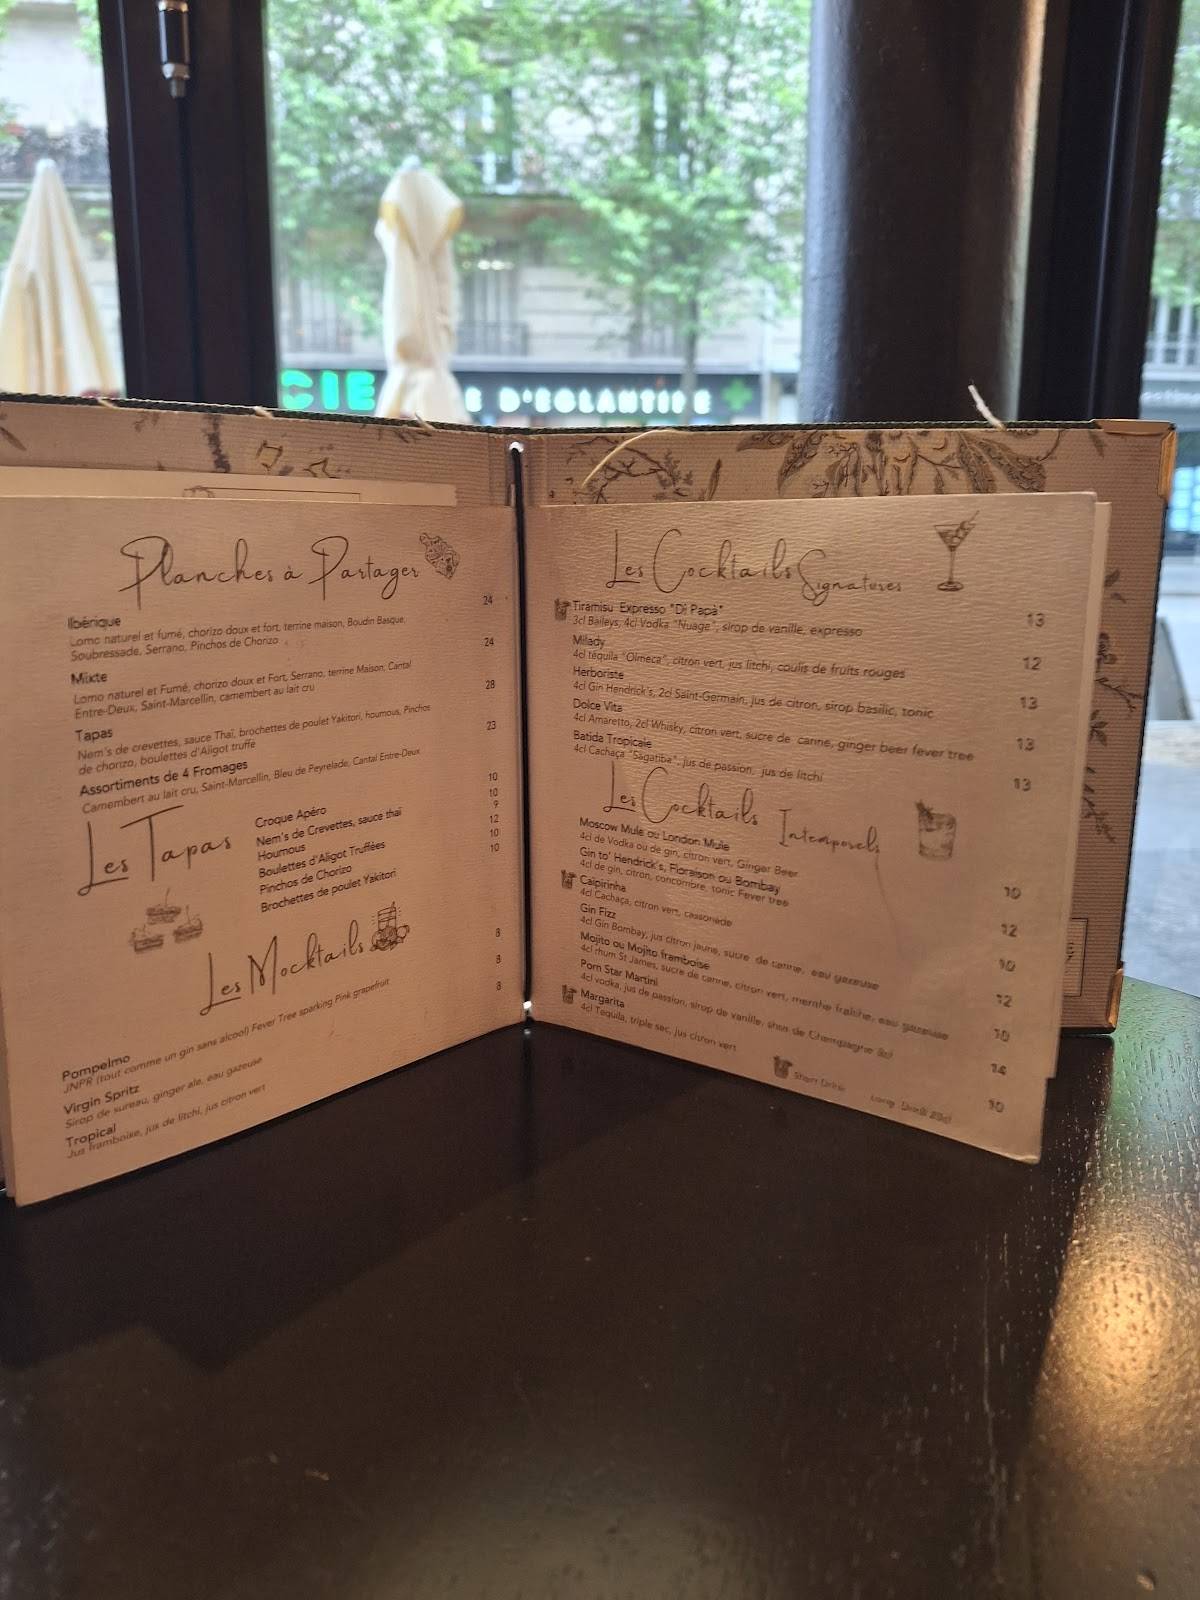 CIE
E D'EGLANTINE
Planches à Partager
Ibérique 24
Lomo naturel et fumé, chorizo doux et fort, terrine maison, Boudin Basque,
Soubressade, Serrano, Pinchos de Chorizo
Mixte 24
Lomo naturel et Fumé, chorizo doux et Fort, Serrano, terrine Maison, Cantal
Entre-Deux, Saint-Marcellin, camembert au lait cru
Tapas 28
Nem's de crevettes, sauce Thaï, brochettes de poulet Yakitori, houmous, Pinchos
de chorizo, boulettes d'Aligot truffé
Assortiments de 4 Fromages 23
Camembert au lait cru, Saint-Marcellin, Bleu de Peyrelade, Cantal Entre-Deux
Les Tapas
Croque Apéro 10
Nem's de Crevettes, sauce thaï 10
Houmous 9
Boulettes d'Aligot Truffées 12
Pinchos de Chorizo 10
Brochettes de poulet Yakitori 10
Les Mocktails
Pompelmo 8
JNPR (tout comme un gin sans alcool) Fever Tree sparking Pink grapefruit
Virgin Spritz 8
Sirop de sureau, ginger ale, eau gazeuse
Tropical 8
Jus framboise, jus de litchi, jus citron vert
Les Cocktails Signatures
Tiramisu Expresso "Di Papà" 13
3cl Baileys, 4cl Vodka "Nuage", sirop de vanille, expresso
Milady 12
4cl téquila "Olmeca", citron vert, jus litchi, coulis de fruits rouges
Herboriste 13
4cl Gin Hendrick's, 2cl Saint-Germain, jus de citron, sirop basilic, tonic
Dolce Vita 13
4cl Amaretto, 2cl Whisky, citron vert, sucre de canne, ginger beer fever tree
Batida Tropicale 13
4cl Cachaça "Sagatiba", jus de passion, jus de litchi
Les Cocktails Intemporels
Moscow Mule ou London Mule 10
4cl de Vodka ou de gin, citron vert, Ginger Beer
Gin to' Hendrick's, Floraison ou Bombay 12
4cl de gin, citron, concombre, tonic Fever tree
Caipirinha 10
4cl Cachaça, citron vert, cassonade
Gin Fizz 12
4cl Gin Bombay, jus citron jaune, sucre de canne, eau gazeuse
Mojito ou Mojito framboise 10
4cl rhum St James, sucre de canne, citron vert, menthe fraîche, eau gazeuse
Porn Star Martini 14
4cl vodka, jus de passion, sirop de vanille, shot de Champagne
Margarita 10
4cl Tequila, triple sec, jus citron vert
Short Drink
Long Drink